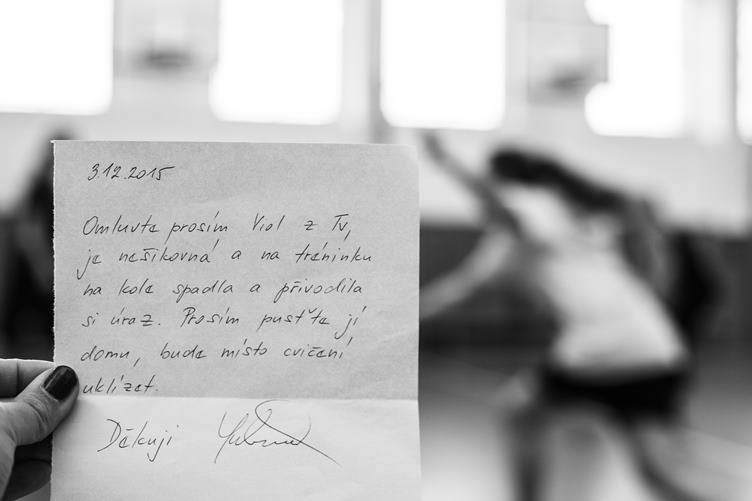 3.12.2015
Omluvte prosím Viol z Tv,
je nešikovná a na tréninku
na kole spadla a přivodila
si úraz. Prosím pusťte jí
domu, bude místo cvičení
uklízet.
Děkuji